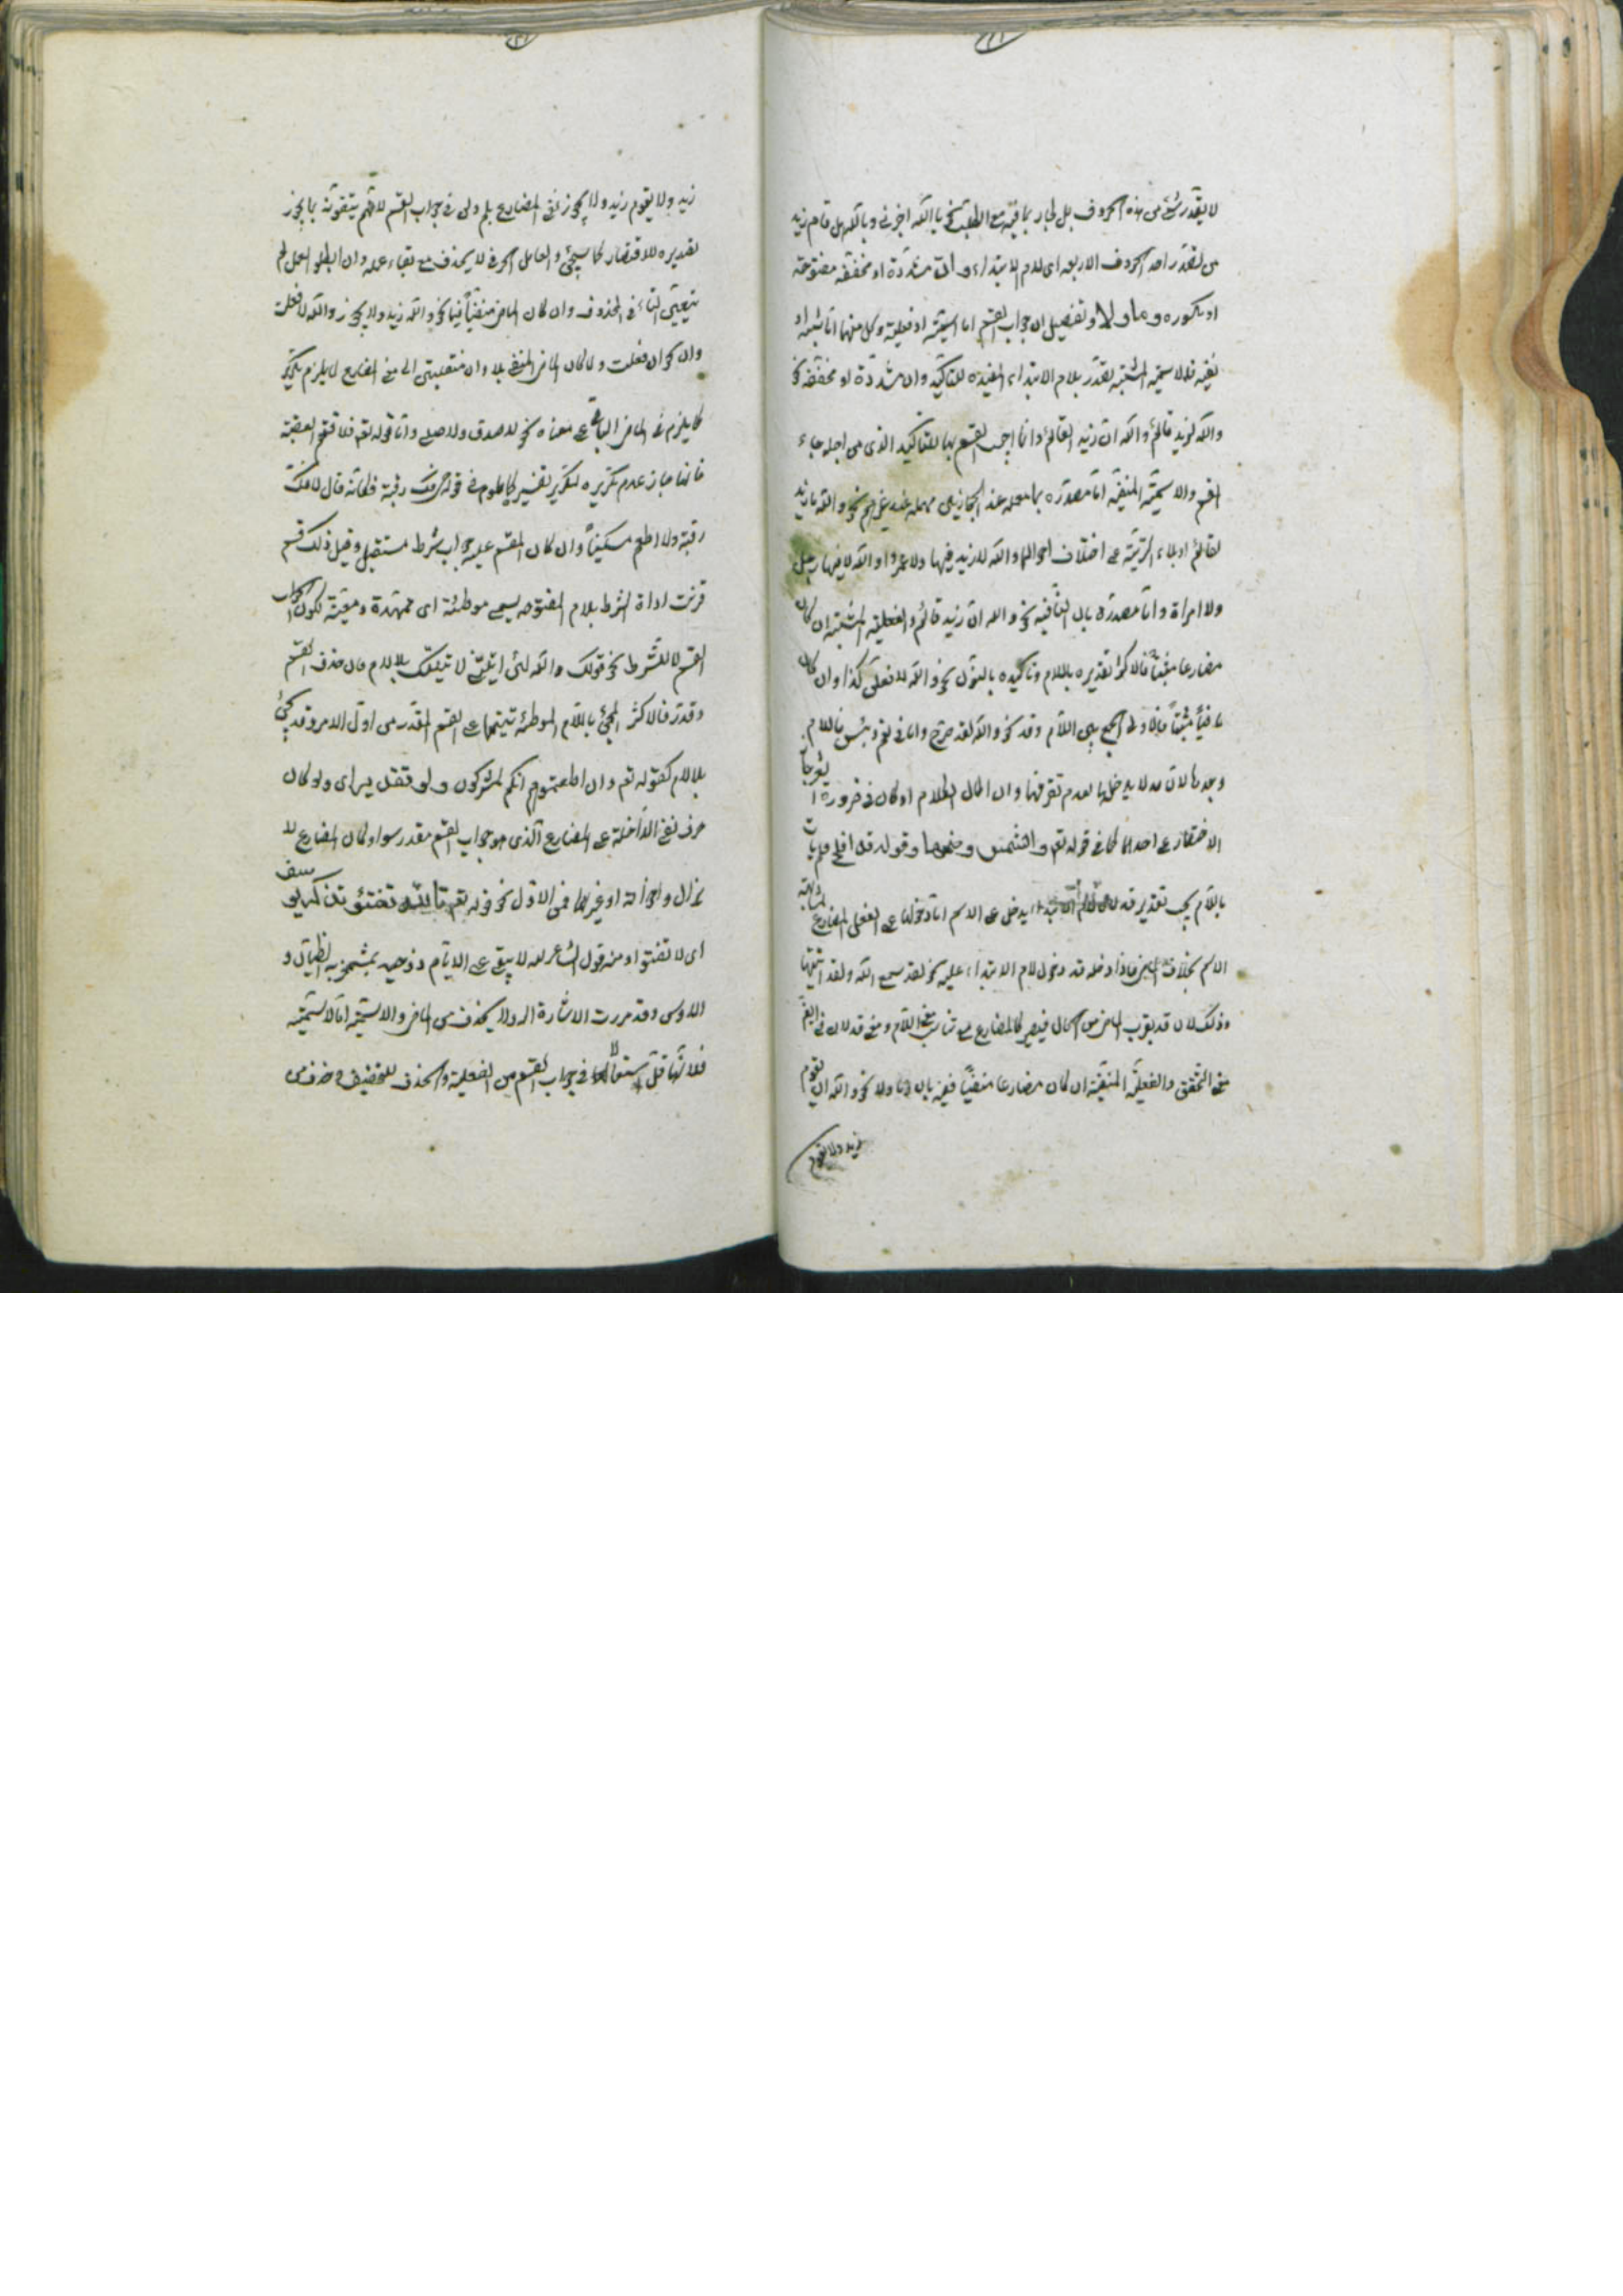 لا يقدر شئ من هذه الحروف بل يجاب بما فيه مع الطلب نحو بالله اخبرني وبالله هل قام زيد
من تصدر احد الحروف الاربعة اى لام الابتداء و ان مشددة او مخففة مفتوحة
او مكسورة و ما و لا و تفصيل ان جواب القسم اما اسمية او فعلية وكل منهما اما مثبتة او
منفية فالاسمية المثبتة تصدر بلام الابتداء المفيدة للتاكيد وان مشددة او مخففة نحو
والله لزيد قائم و والله ان زيدا لقائم وانما اجيب القسم بها للتاكيد الذى من اجله جاء
القسم والاسمية المنفية اما مصدرة بما معملة عند الحجازيين مهملة عند غيرهم نحو والله ما زيد
لقائم او بلاء التبرئة على اختلاف احوالها والله لا زيد فيها ولا عمرو او والله لا فيها رجل
ولا امراة واما مصدرة بان النافية نحو والله ان زيد قائم والفعلية المثبتة ان كان
مضارعا مثبتا فالاكثر تصديره باللام وتاكيده بالنون نحو والله لافعلن كذا وان كان
ماضيا مثبتا فالاولى الجمع بين اللام وقد نحو والله لقد خرج واما فى نعم وبئس فاللام
وحدها لان قد لا يدخلهما لعدم تصرفهما وان طال الكلام او كان فى ضرورة الشعر جاز
الاختصار على احدهما كما فى قوله تعم والشمس وضحيها وقوله قد افلح
باللام يجب تقدير قد لان لام الابتداء يدخل على الاسم اما دخولها على الفعل المضارع لمشابهة
الاسم بخلاف الماضى فاذا دخله قد دخول لام الابتداء عليه نحو لقد سمع الله ولقد اتينا
وذلك لان قد يقرب الماضى من الحال فيصير كالمضارع مع تناسب معنى اللام ومعنى قد لان فى قد ايضا
معنى التحقق والفعلية المنفية ان كان مضارعا منفيا فبما وان ولا نحو والله ان يقوم
زيد ولا يقوم
زيد ولا يقوم زيد ولا يجوز نفى المضارع بلم ولن فى جواب القسم لانهم يتفقون بما يجوز
تقديره للاقتصار كما سيجئ والعامل الحرفى لا يحذف مع بقاء عمله وان ابطلوا العمل لم
يتعين النافى المحذوف وان كان الماضى منفيا فبما نحو والله زيد ولا يجوز والله لا فعلت
وان نحو ان فعلت ولما كان الماضى المنفى بلا وان منقلبتين الى معنى المضارع لا يلزم تكرير
كما يلزم فى الماضى الباقى على معناه نحو لا صدق ولا صلى واما قوله تعم فلا اقتحم العقبة
فانما جاز عدم تكريره لتكرير تفسيره كما علم فى قوله فك رقبة فكانه قال لا فك
رقبة ولا اطعم مسكينا وان كان المقسم عليه جواب شرط مستقبل وقبل ذلك قسم
قرنت اداة الشرط بلام المفتوحة يسمى موطئة اى ممهدة ومعينة لكون الجواب
القسم لا للشرط نحو قولك والله لئن اتيتنى لا تيتك بلا لام فان حذف القسم
وقدر فالاكثر المجئ باللام الموطئة تنبيها على القسم المقدر من اول الامر وقد يجئ
بلا لام كقوله تعم وان اطعتموهم انكم لمشركون ولو كان
حرف نفى الداخلة على المضارع الذى هو جواب القسم مقدر سواء كان المضارع لا
يزال واخواته او غيرها فمن الاول نحو قوله تعم تالله تفتؤ تذكر يوسف
اى لا تفتؤ ومنه قول الشاعر لله لا يبقى على الايام ذو حيد بمشمخر به الظيان و
الاس وقد مررت الاشارة اليه ولا يحذف من الماضى والاسمية اما الاسمية
فلانها اقل استعمالا فى جواب القسم من الفعلية والحذف للتخفيف وحذف من